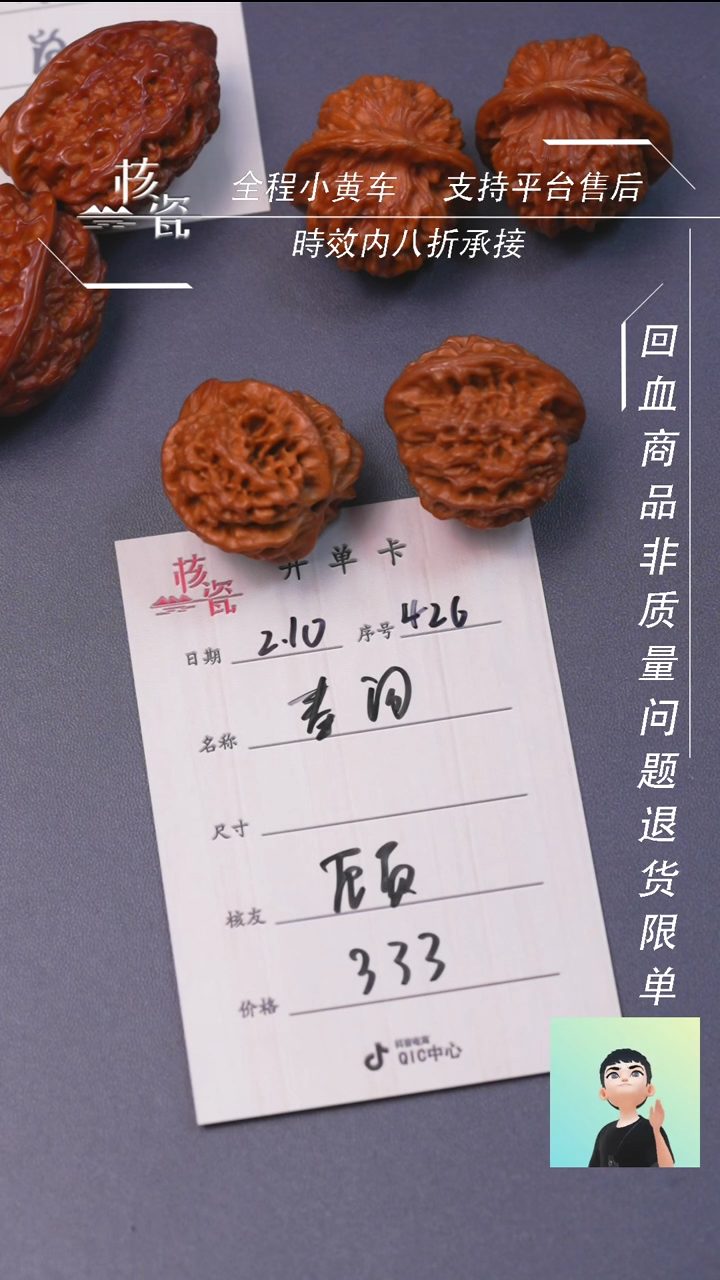 核瓷
全程小黄车 支持平台售后
時效内八折承接
回血商品非质量问题退货限单
核瓷 开单卡
日期 2.10 序号 426
名称
尺寸
核友 顾
价格 333
抖音电商
QIC中心